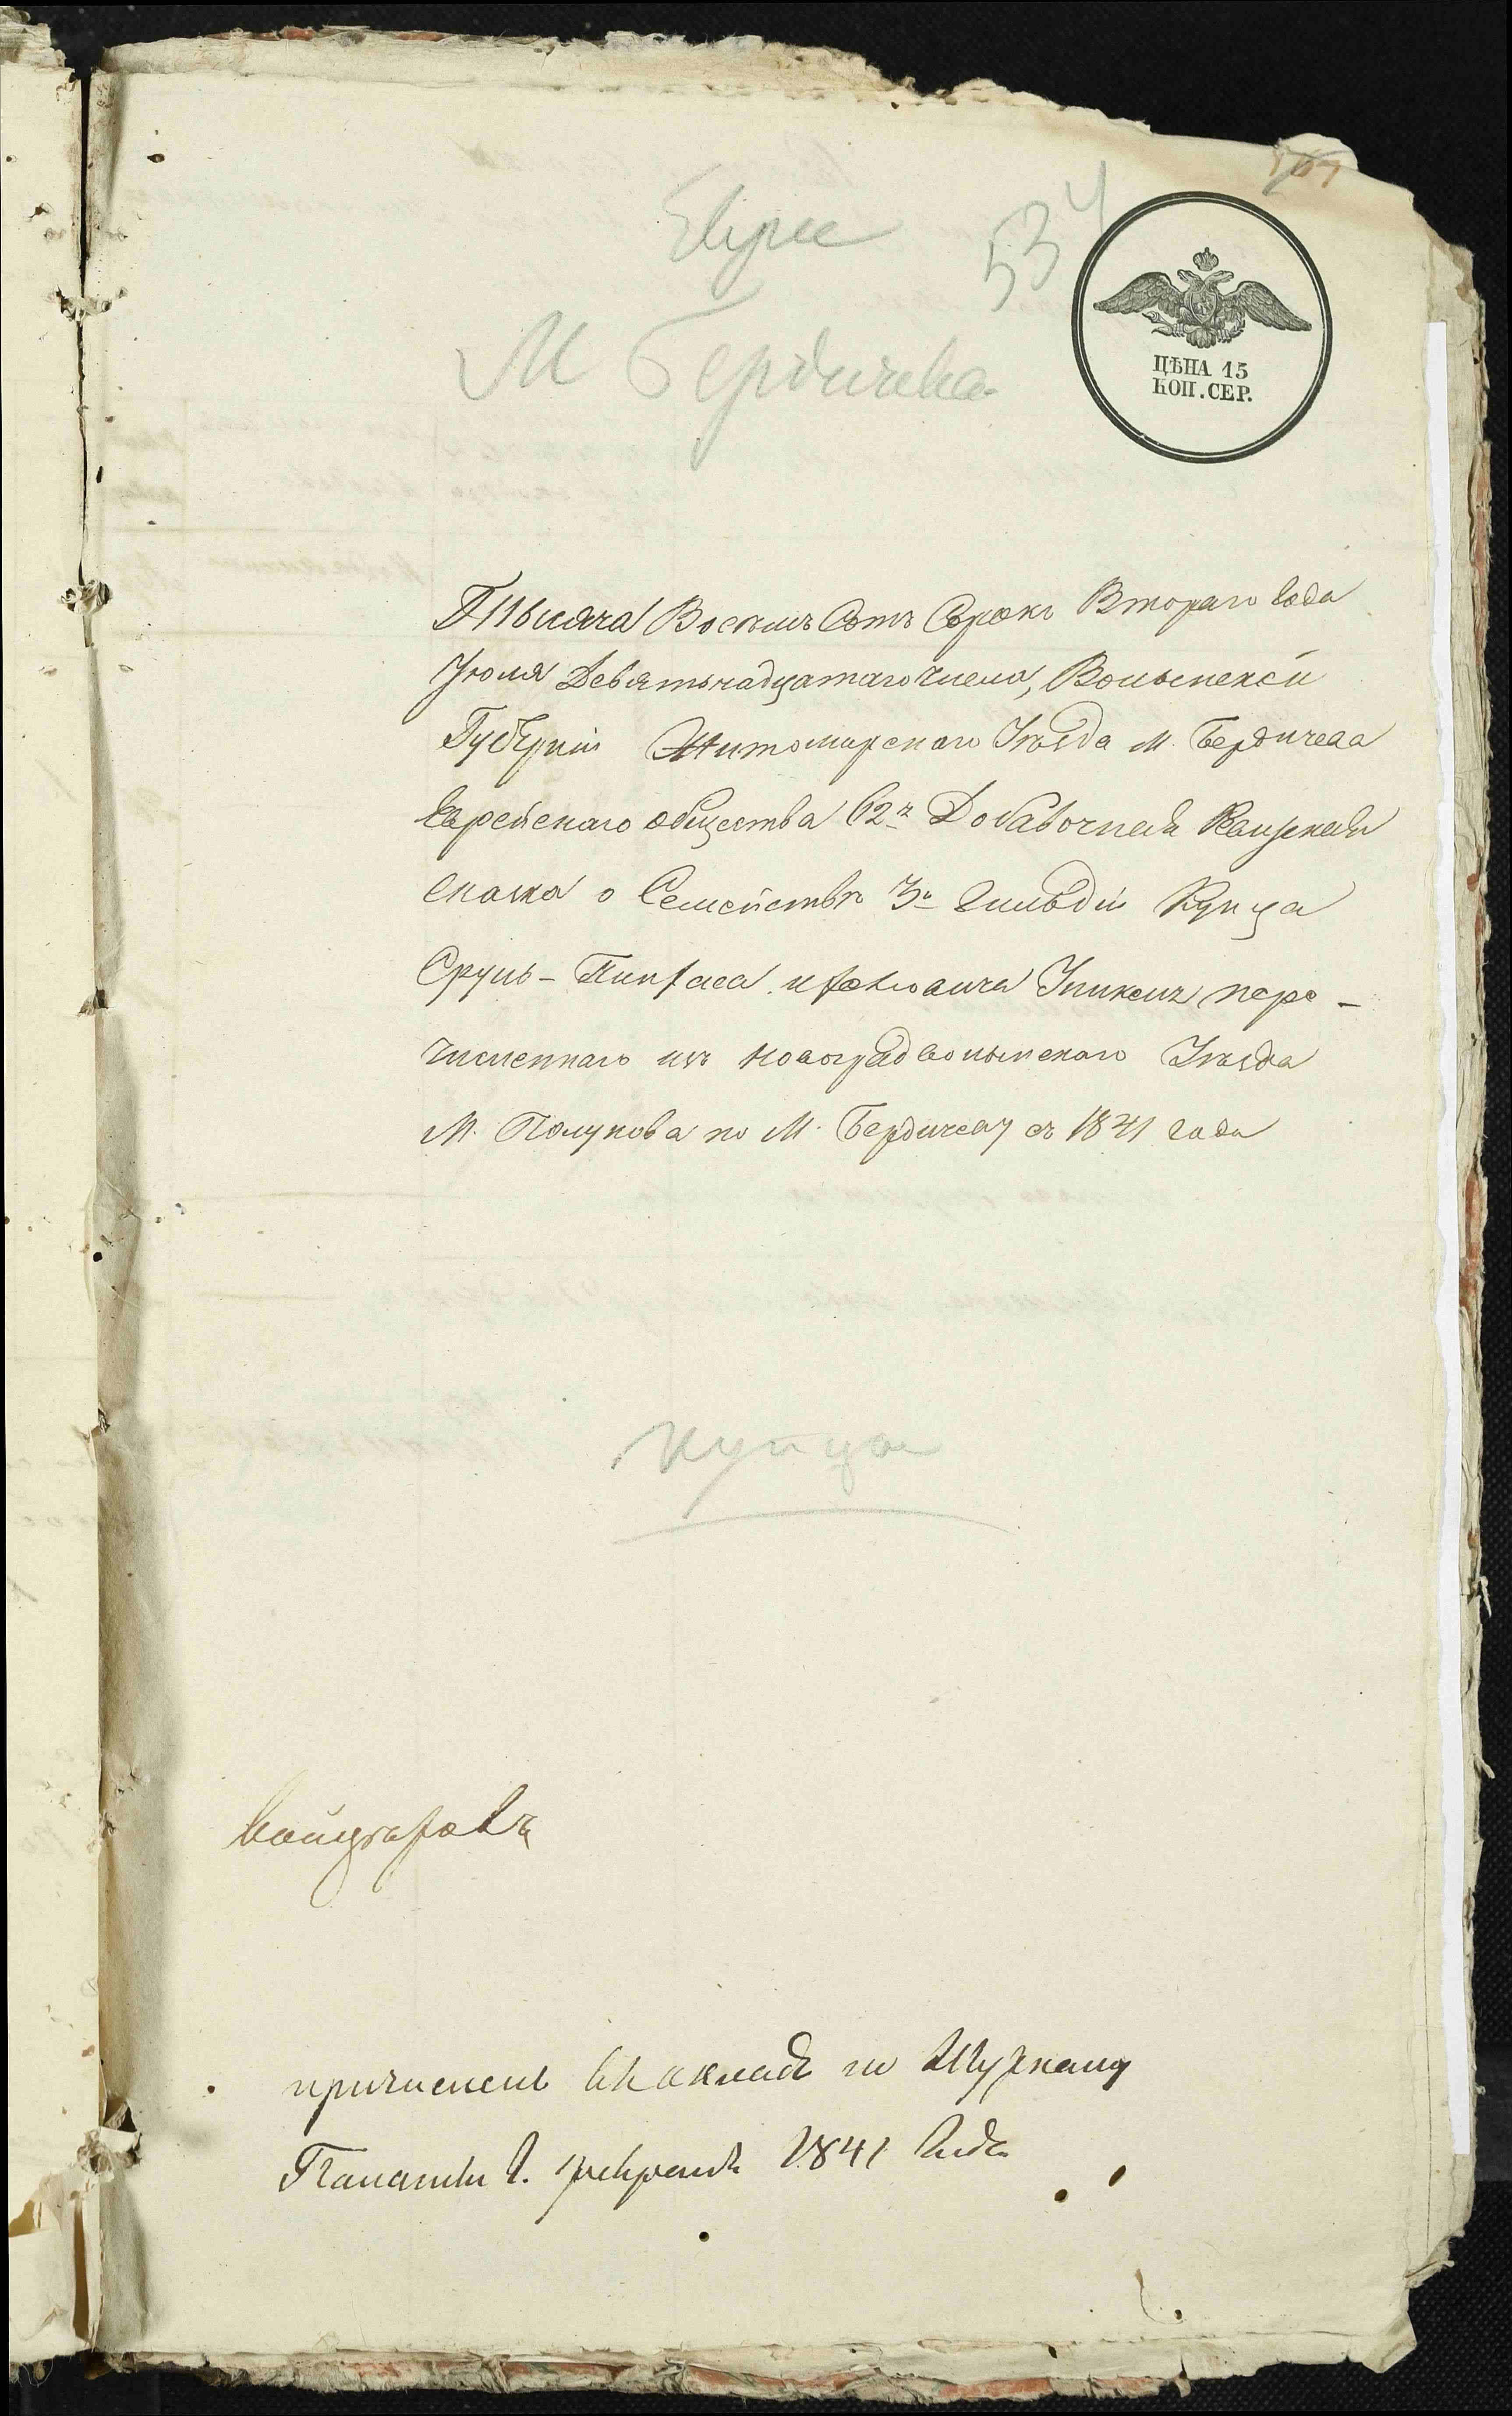 534
Евреи
М Бердичева
ЦѢНА 15
КОП. СЕР.
Тысяча Восемь Сотъ Сорокъ Втораго Года
Іюля Девятьнадцатаго числа, Волынской
Губерніи Житомирскаго Уѣзда М. Бердичева
Еврейскаго общества 62я Добавочная Ревизская
сказка о Семействѣ 3й Гильдіи Купца
Сруль-Пинхаса пере-
численнаго изъ Новоградволынскаго Уѣзда
М. по М. Бердичеву съ 1841 года
купцы
причислены въ окладъ по Журналу
Палаты 1841 Года